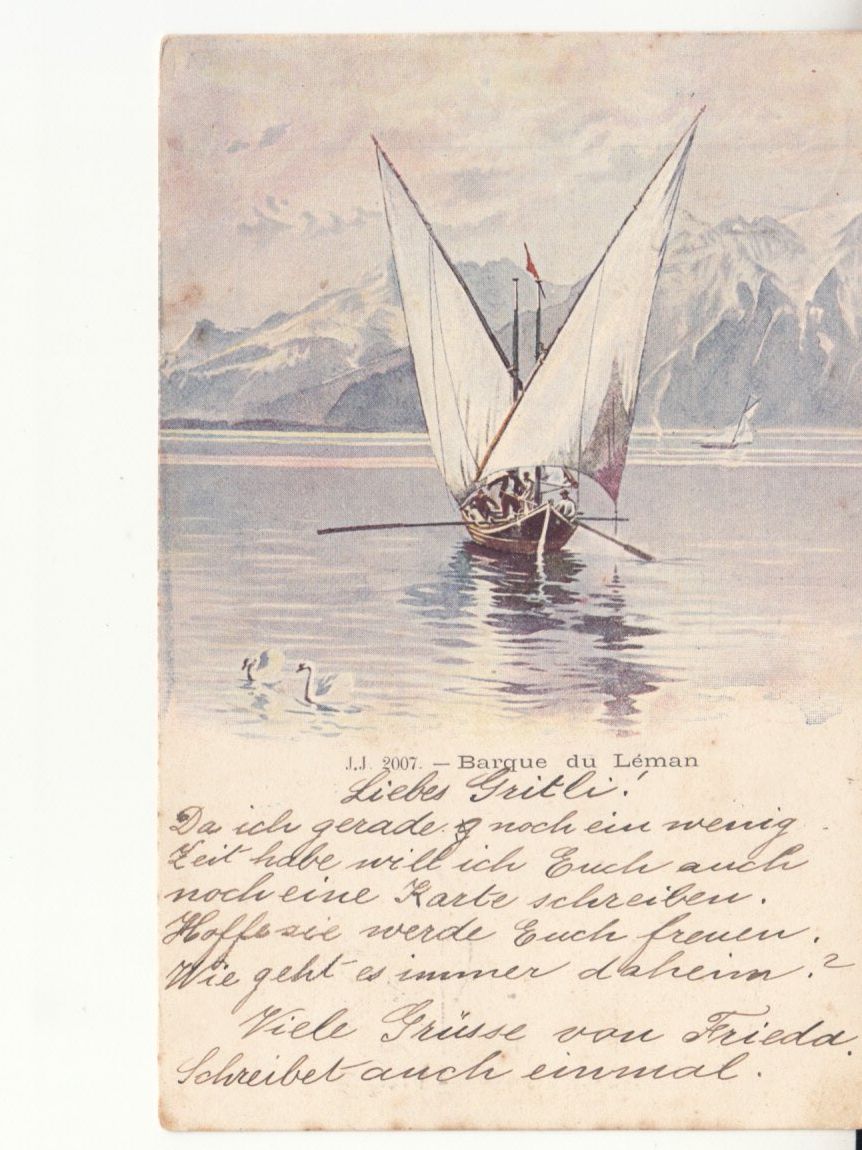 J.J. 2007. — Barque du Léman
Liebes Gritli!
Da ich gerade noch ein wenig
Zeit habe will ich Euch auch
noch eine Karte schreiben.
Hoffe sie werde Euch freuen.
Wie geht es immer daheim.?
Viele Grüsse von Frieda.
Schreibet auch einmal.